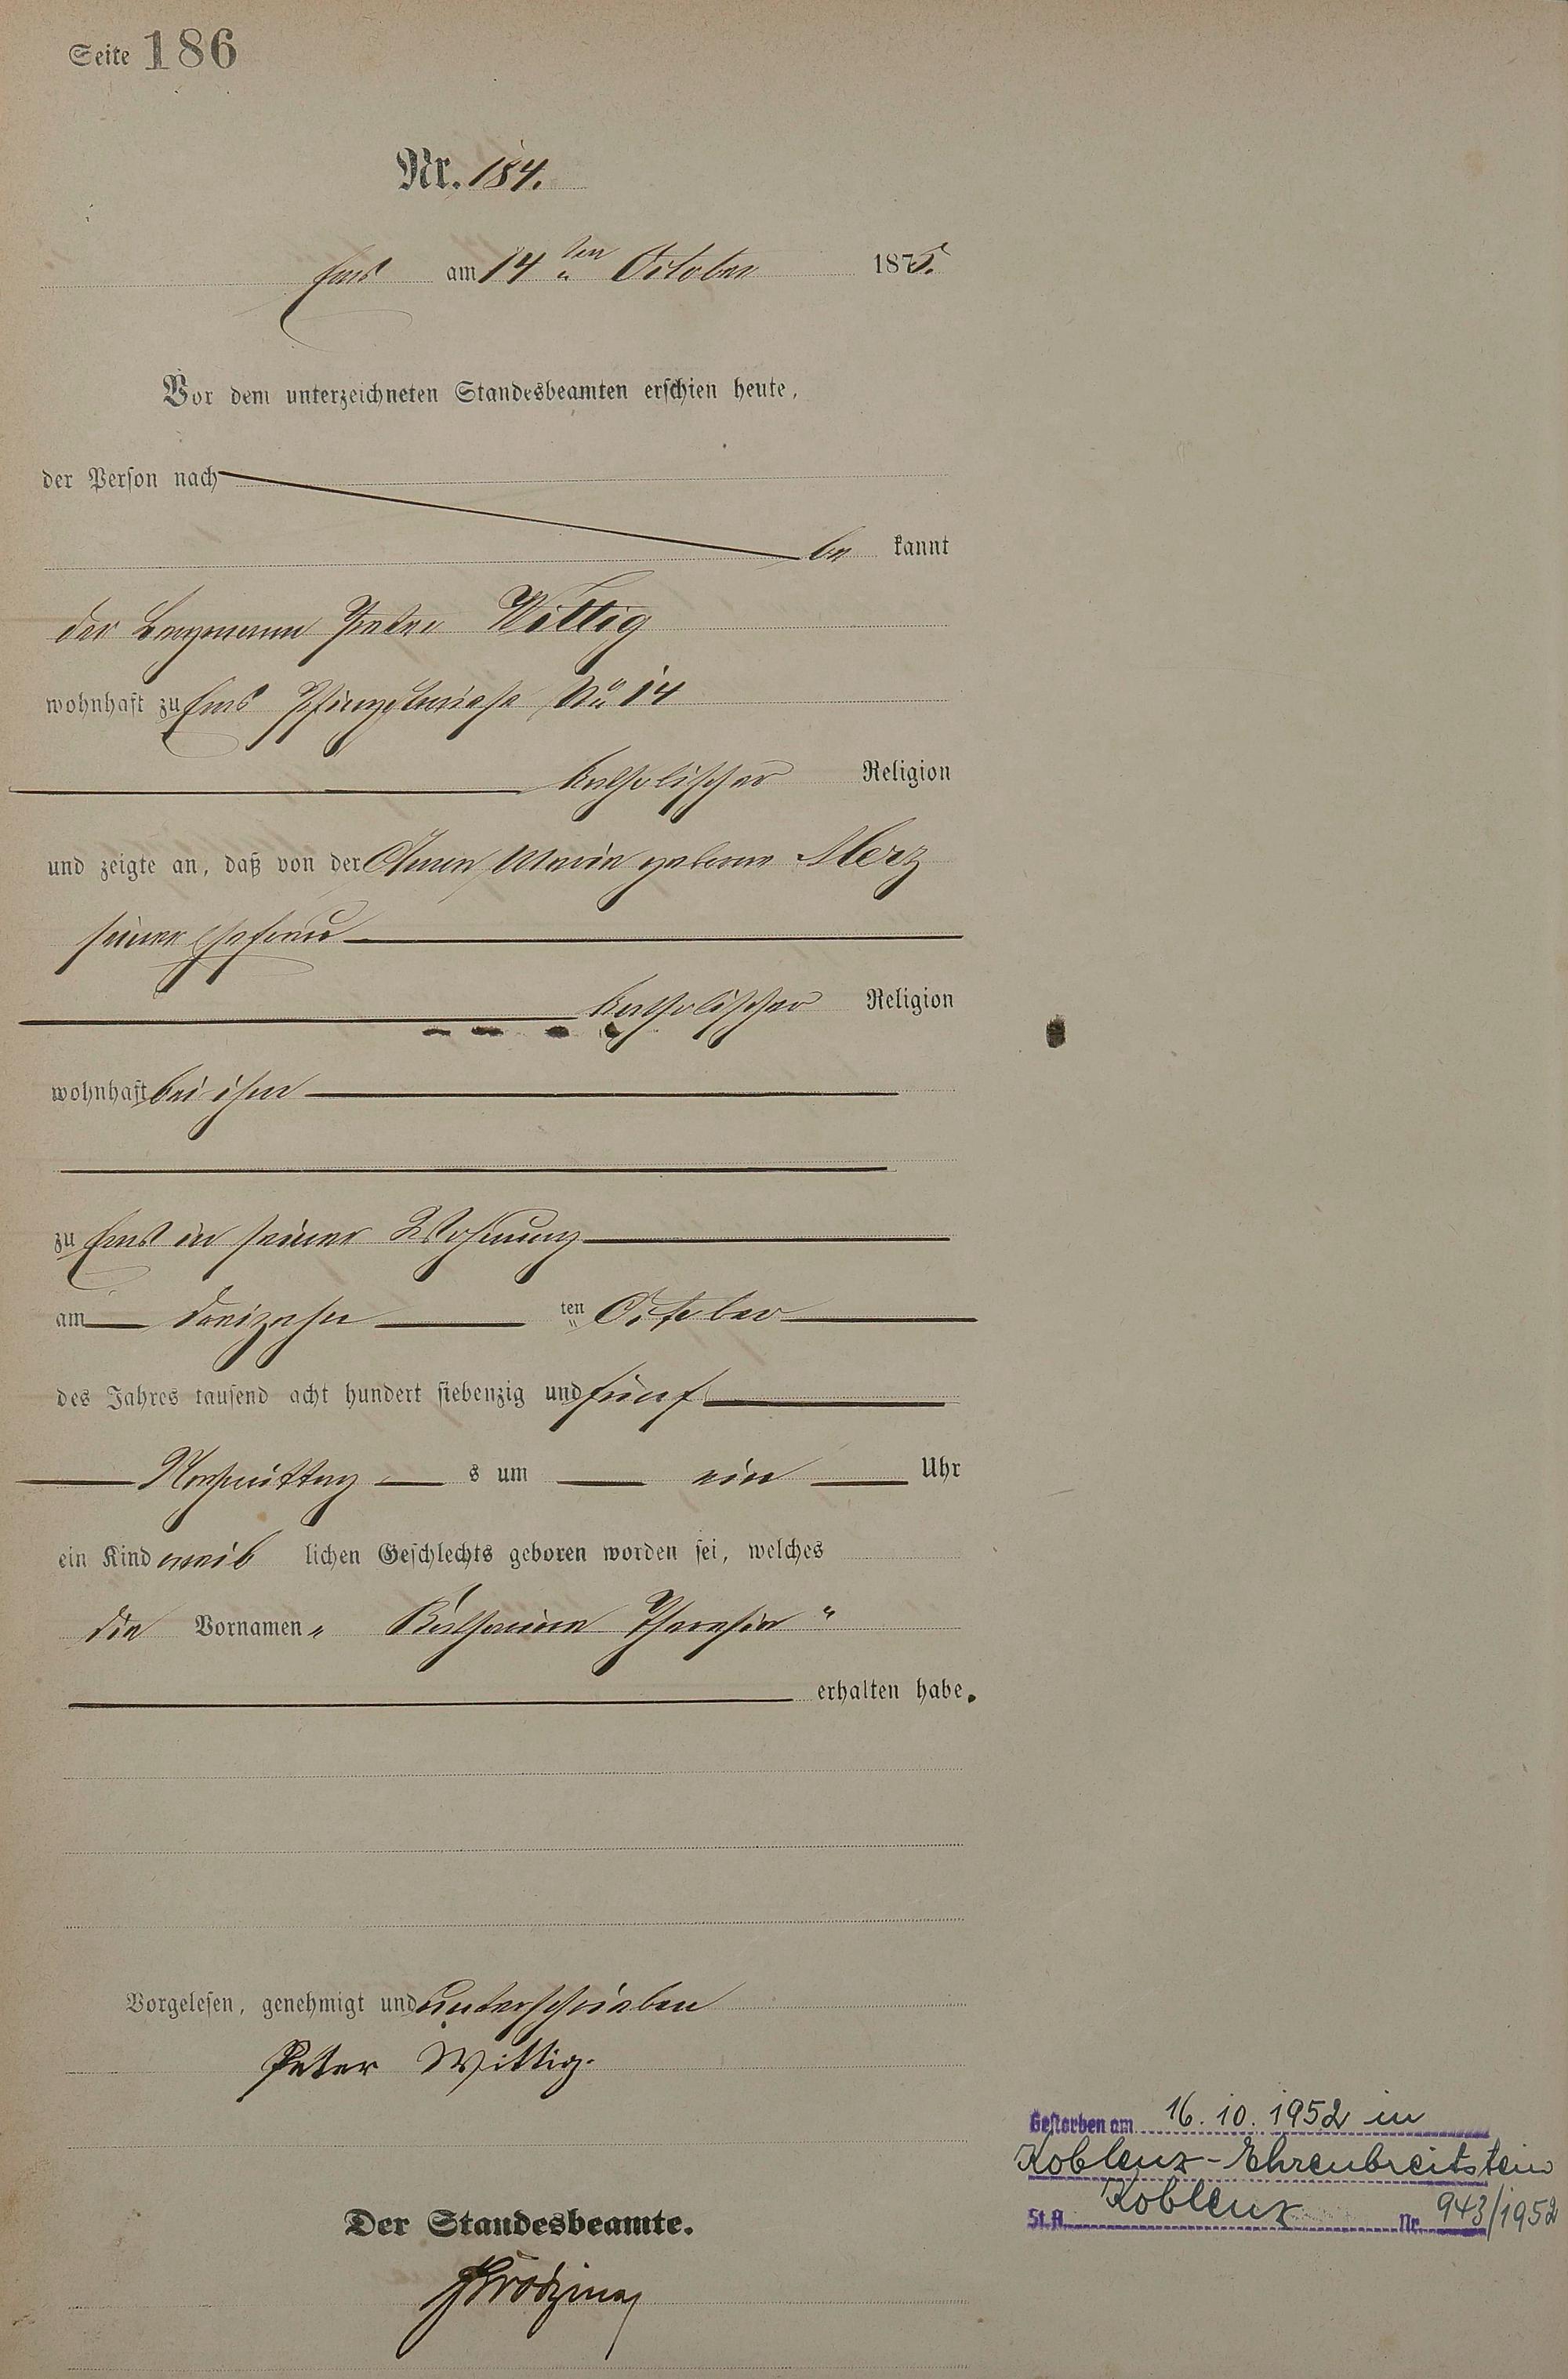 Seite 186
Nr. 184.
Ems am 14 ten October 1875.
Vor dem unterzeichneten Standesbeamten erschien heute,
der Person nach
be kannt
der Bergmann Peter Wittig
wohnhaft zu Ems No 14
katholischer Religion
und zeigte an, daß von der Anna Maria geborne Merz
seiner Ehefrau
katholischer Religion
wohnhaft bei ihm
zu Ems in seiner Wohnung
am dreizehn ten October
des Jahres tausend acht hundert siebenzig und fünf
Nachmittag s um ein Uhr
ein Kind weib lichen Geschlechts geboren worden sei, welches
die Vornamen „ Katharina Theresia "
erhalten habe.
Vorgelesen, genehmigt und unterschrieben
Peter Wittig.
Der Standesbeamte.
Gestorben am 16.10.1952 in
Koblenz-Ehrenbreitstein
St.A. Koblenz Nr. 943/1952